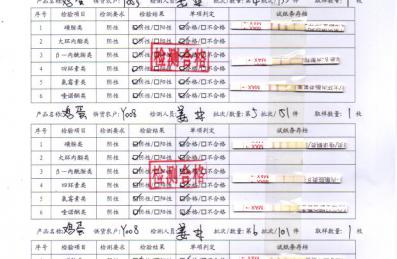 产品名称:鸡蛋 供货农户:Y005 检测人员: 批次/数量:第4批次/151件 取样数量:1枚
序号 检验项目 检测要求 检验结果 单项判定 试纸条存档
1 磺胺类 阴性 ☑阴性/□阳性 ☑合格/□不合格
2 大环内酯类 阴性 ☑阴性/□阳性 ☑合格/□不合格
3 β-内酰胺类 阴性 ☑阴性/□阳性 ☑合格/□不合格
4 四环素类 阴性 ☑阴性/□阳性 ☑合格/□不合格
5 氟苯尼类 阴性 ☑阴性/□阳性 ☑合格/□不合格
6 喹诺酮类 阴性 ☑阴性/□阳性 ☑合格/□不合格
检测合格
产品名称:鸡蛋 供货农户:Y008 检测人员: 批次/数量:第5批次/151件 取样数量:1枚
序号 检验项目 检测要求 检验结果 单项判定 试纸条存档
1 磺胺类 阴性 ☑阴性/□阳性 ☑合格/□不合格
2 大环内酯类 阴性 ☑阴性/□阳性 ☑合格/□不合格
3 β-内酰胺类 阴性 ☑阴性/□阳性 ☑合格/□不合格
4 四环素类 阴性 ☑阴性/□阳性 ☑合格/□不合格
5 阴性 ☑阴性/□阳性 ☑合格/□不合格
6 喹诺酮类 阴性 ☑阴性/□阳性 ☑合格/□不合格
检测合格
产品名称:鸡蛋 供货农户:Y008 检测人员: 批次/数量:第6批次/101件 取样数量:1枚
序号 检验项目 检测要求 检验结果 单项判定 试纸条存档
1 磺胺类 阴性 ☑阴性/□阳性 ☑合格/□不合格